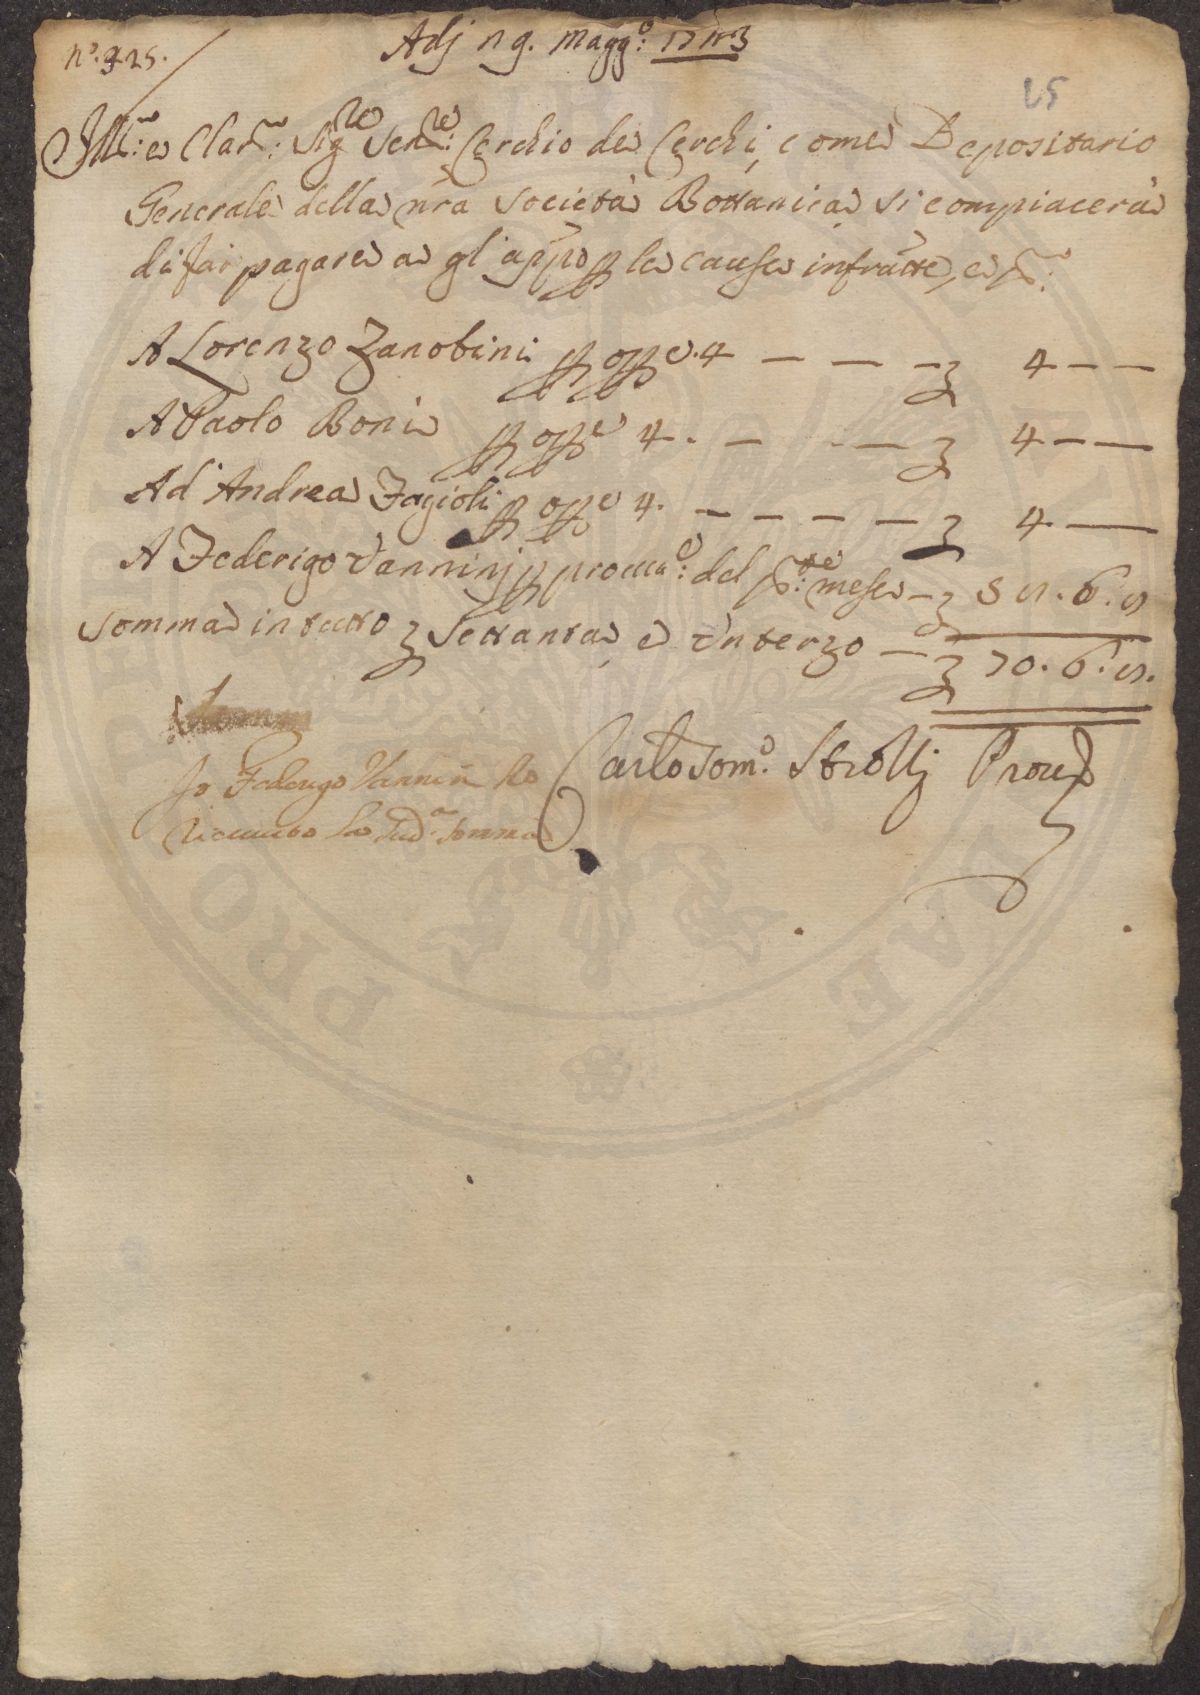 N.º 325.
Adj 29. Magg.º 1743
25
Ill.mo e Clar.mo Sig.re Sen.re Cerchio de Cerchi, come Depositario
Generale della nra Società Bottanica si compiacerà
di far pagare a gl'appo p le cause infratte, e p.mo
A Lorenzo Zanobini p opre. 4 — — — 4 — —
A Paolo Boni p opre 4. — — 4 — —
Ad Andrea Fagioli p opre 4. — — — — 4. —
A Federigo Vannini p procu.e del p.nte mese — 58. 6. 8
Somma in tutto Settanta, e un terzo — 70. 6. 8.
Io Federigo Vannini ho
riceuuto la sud.a somma
Carlo Tom.º Strozzj Prou.re